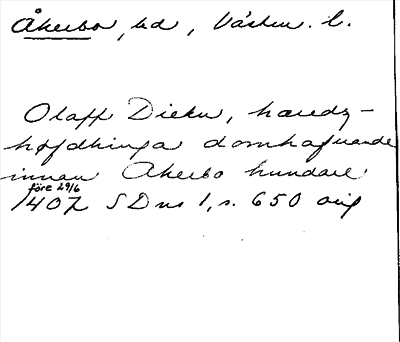 Åkerbo, hd, Västm. l.
Olaff Dieken, haredz-
høfdhinga domhafuande
innan Akerbo hundare
före 29/6
1407 SDns 1, s. 650 orig